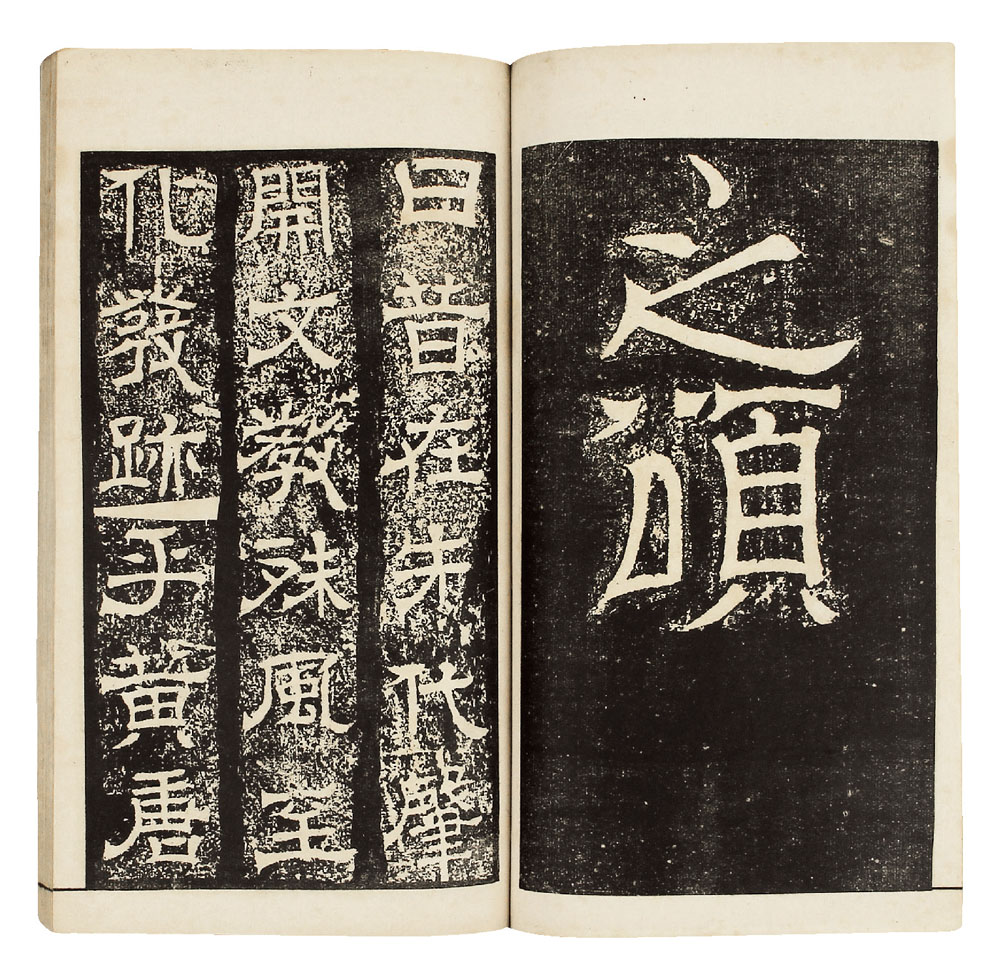 之頌
曰昔在朱代肇
開文教殊風至
化發跡乎黃唐